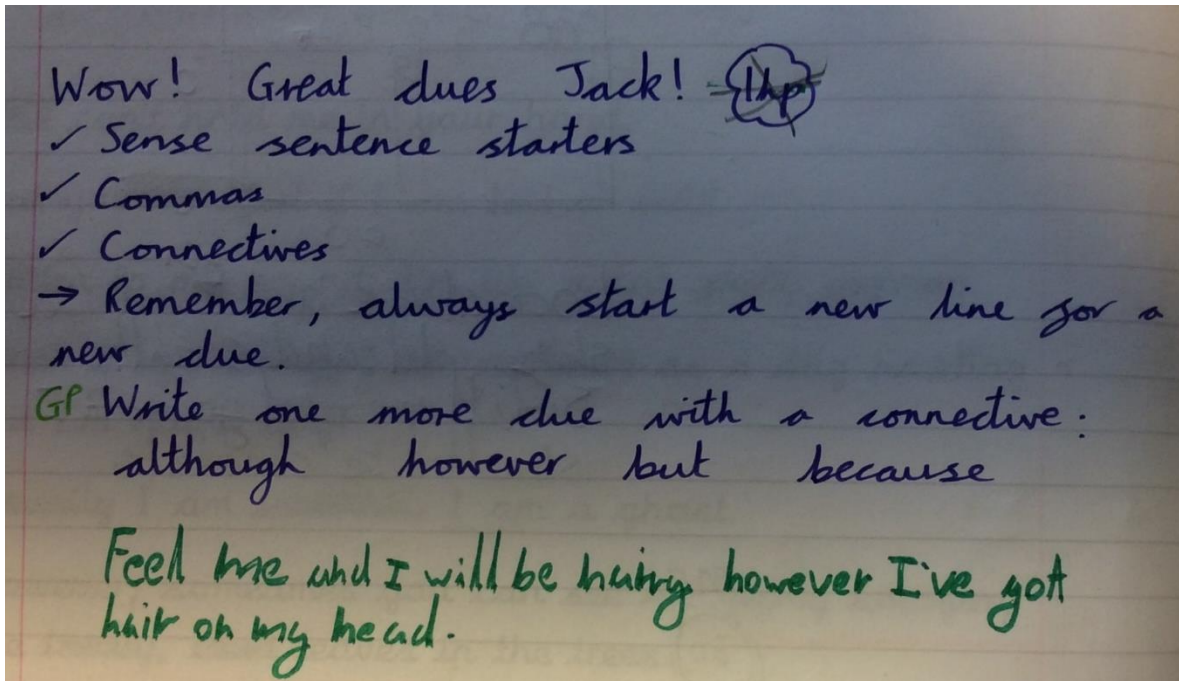 Wow! Great clues Jack! 1hp
✓ Sense sentence starters
✓ Commas
✓ Connectives
→ Remember, always start a new line for a
new clue.
GP Write one more clue with a connective:
although however but because
Feel me and I will be hairy however I've got
hair on my head.